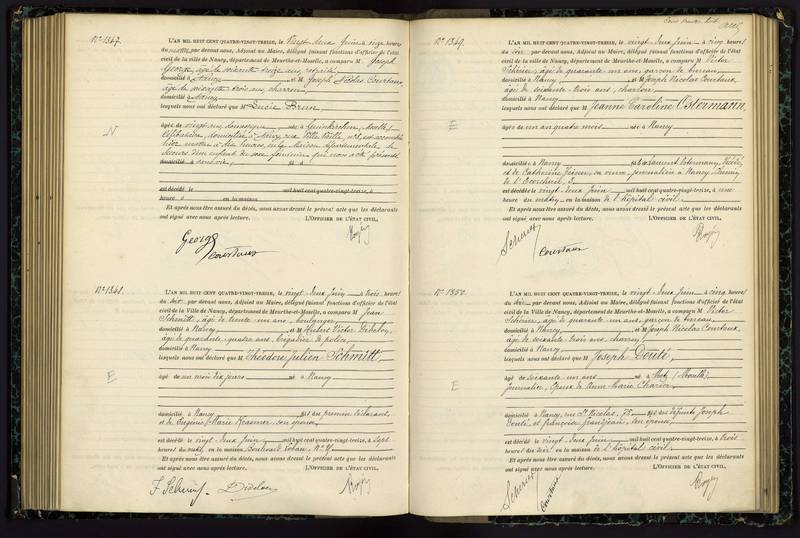 N° 1347.
L'AN MIL HUIT CENT QUATRE-VINGT-TREIZE, le Vingt deux Juin à onze heures
du matin par devant nous, Adjoint au Maire, délégué faisant fonctions d'officier de l'état
civil de la Ville de Nancy, département de Meurthe-et-Moselle, a comparu M Joseph
George, âgé de soixante treize ans, retraité,
domicilié à Nancy et M Joseph Nicolas Courtaux,
âgé de soixante trois ans, charron,
domicilié à Nancy
lesquels nous ont déclaré que M Lucie Brun,
âgée de vingt ans, domestique, née à
Célibataire, domiciliée à Nancy, rue
hier à dix heures, en la Maison départementale de
Secours d'un enfant du sexe féminin qui nous a été présenté
domicilié à sans vie,
est décédé le mil huit cent quatre-vingt-treize, à
heure s en la maison
Et après nous être assuré du décès, nous avons dressé le présent acte que les déclarants
ont signé avec nous après lecture. L'OFFICIER DE L'ÉTAT CIVIL,
George
Courtaux
N° 1348.
L'AN MIL HUIT CENT QUATRE-VINGT-TREIZE, le vingt-deux Juin à trois heures
du soir par devant nous, Adjoint au Maire, délégué faisant fonctions d'officier de l'état
civil de la Ville de Nancy, département de Meurthe-et-Moselle, a comparu M Jean
Schmitt, âgé de trente un ans, boulanger,
domicilié à Nancy et M Hubert Victor Didelon,
âgé de quarante-quatre ans, brigadier de police,
domicilié à Nancy
lesquels nous ont déclaré que Théodore Julien Schmitt
E
âgé de un mois dix jours né à Nancy
domicilié à Nancy fils du premier déclarant
et de Eugénie Marie Kraemer son épouse
est décédé le vingt-deux Juin mil huit cent quatre-vingt-treize, à sept
heures du matin en la maison Boulevard Lobau, N°
Et après nous être assuré du décès, nous avons dressé le présent acte que les déclarants
ont signé avec nous après lecture. L'OFFICIER DE L'ÉTAT CIVIL,
Didelon
N° 1349.
L'AN MIL HUIT CENT QUATRE-VINGT-TREIZE, le vingt-deux Juin à cinq heures
du soir par devant nous, Adjoint au Maire, délégué faisant fonctions d'officier de l'état
civil de la Ville de Nancy, département de Meurthe-et-Moselle, a comparu M Victor
Schérier, âgé de quarante-un ans, garçon de bureau,
domicilié à Nancy et M Joseph Nicolas Courtaux,
âgé de soixante-trois ans, charron,
domicilié à Nancy
lesquels nous ont déclaré que M Jeanne Caroline Ostermann,
E
âgée de un an quatre mois née à Nancy
domiciliée à Nancy fille de Laurent Ostermann, décédé,
et de Catherine sa veuve, journalière à Nancy, chemin
est décédée le vingt-deux Juin mil huit cent quatre-vingt-treize, à onze
heures du matin en la maison de l'hôpital civil.
Et après nous être assuré du décès, nous avons dressé le présent acte que les déclarants
ont signé avec nous après lecture. L'OFFICIER DE L'ÉTAT CIVIL,
Scherier
Courtaux
N° 1350.
L'AN MIL HUIT CENT QUATRE-VINGT-TREIZE, le vingt-deux Juin à cinq heures
du soir par devant nous, Adjoint au Maire, délégué faisant fonctions d'officier de l'état
civil de la Ville de Nancy, département de Meurthe-et-Moselle, a comparu M Victor
Schérier, âgé de quarante-un ans, garçon de bureau,
domicilié à Nancy et M Joseph Nicolas Courtaux,
âgé de soixante-trois ans, charron,
domicilié à Nancy
lesquels nous ont déclaré que M Joseph Douté,
E
âgé de soixante-un ans né à Metz (Moselle),
journalier, époux de Anne Marie Charier
domicilié à Nancy, rue St Nicolas, 78 fils des défunts Joseph
Douté et Françoise Grandjean, son épouse
est décédé le vingt-deux Juin mil huit cent quatre-vingt-treize, à trois
heures du soir en la maison de l'hôpital civil.
Et après nous être assuré du décès, nous avons dressé le présent acte que les déclarants
ont signé avec nous après lecture. L'OFFICIER DE L'ÉTAT CIVIL,
Scherier
Courtaux